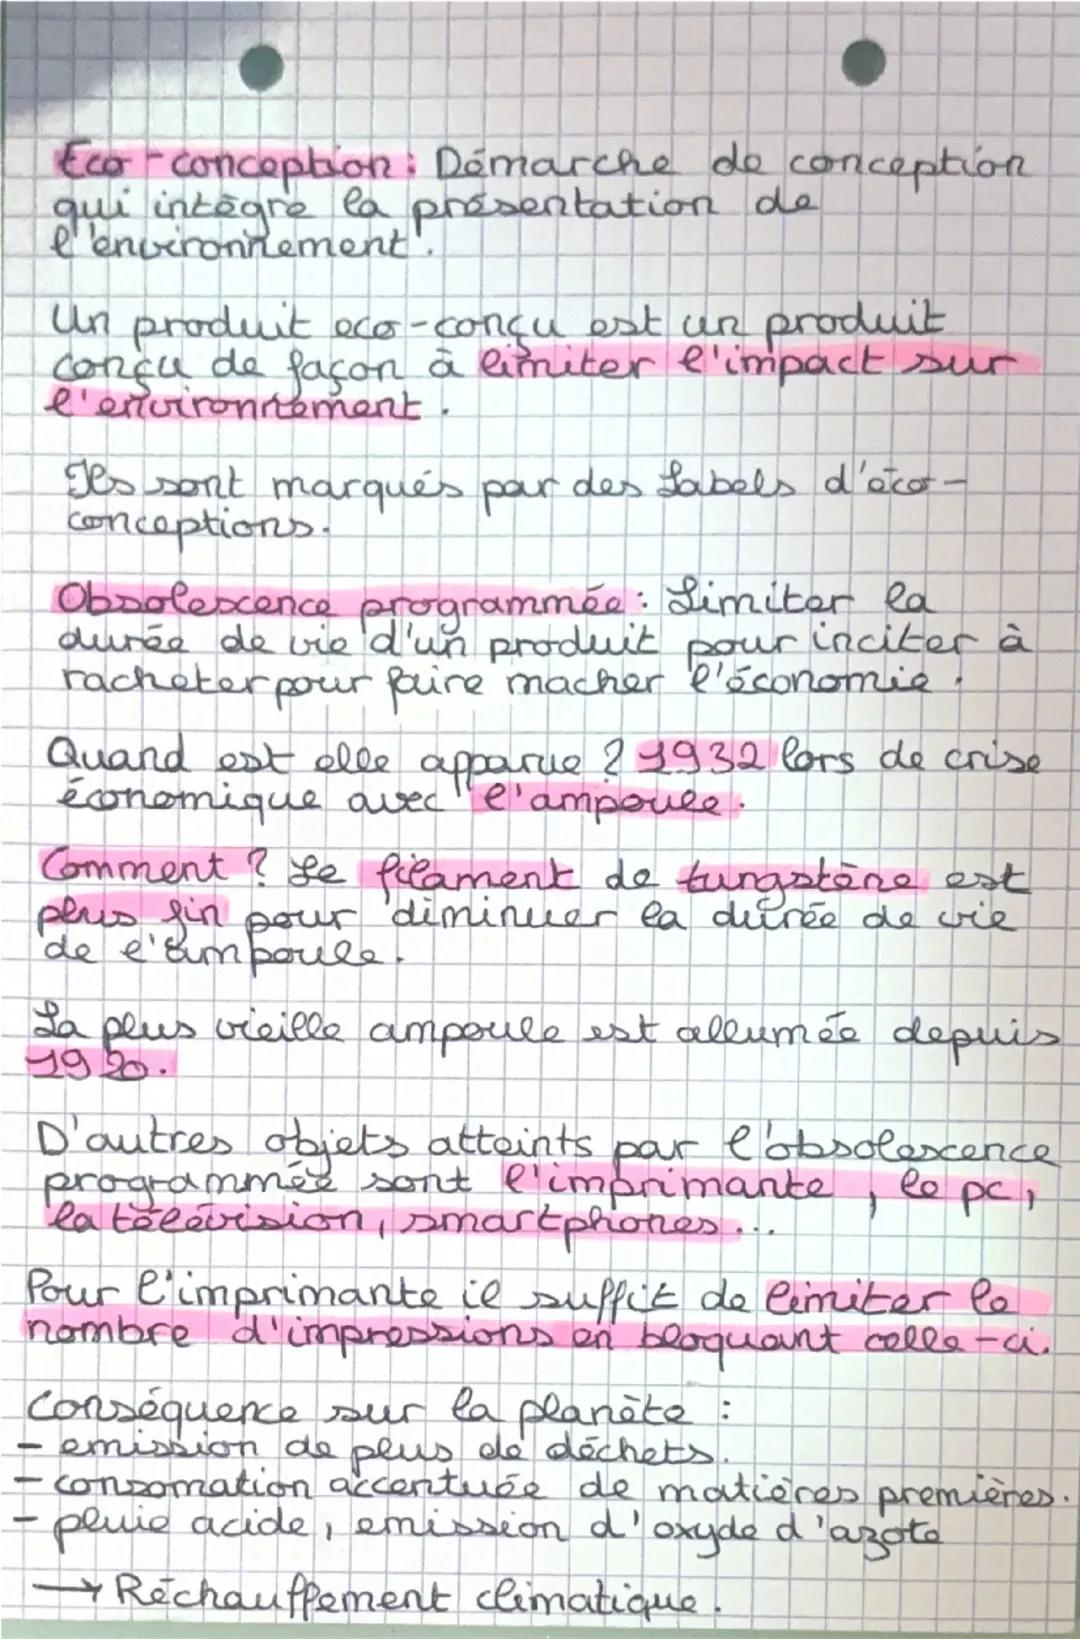 Eco-conception : Démarche de conception
qui intègre la présentation de
l'environnement.
Un produit eco-conçu est un produit
conçu de façon à limiter l'impact sur
l'environnement.
Ils sont marqués par des labels d'éco-
conceptions.
Obsolescence programmée : Limiter la
durée de vie d'un produit pour inciter à
racheter pour faire macher l'économie.
Quand est elle apparue ? 1932 lors de crise
économique avec l'ampoule.
Comment ? Le filament de tungstène est
plus fin pour diminuer la durée de vie
de l'ampoule.
La plus vieille ampoule est allumée depuis
1920.
D'autres objets atteints par l'obsolescence
programmée sont l'imprimante, le pc,
la télévision, smartphones...
Pour l'imprimante il suffit de limiter le
nombre d'impressions en bloquant celle-ci.
Conséquence sur la planète :
- emission de plus de déchets.
- consomation accentuée de matières premières.
- pluie acide, emission d'oxyde d'azote
→ Réchauffement climatique.